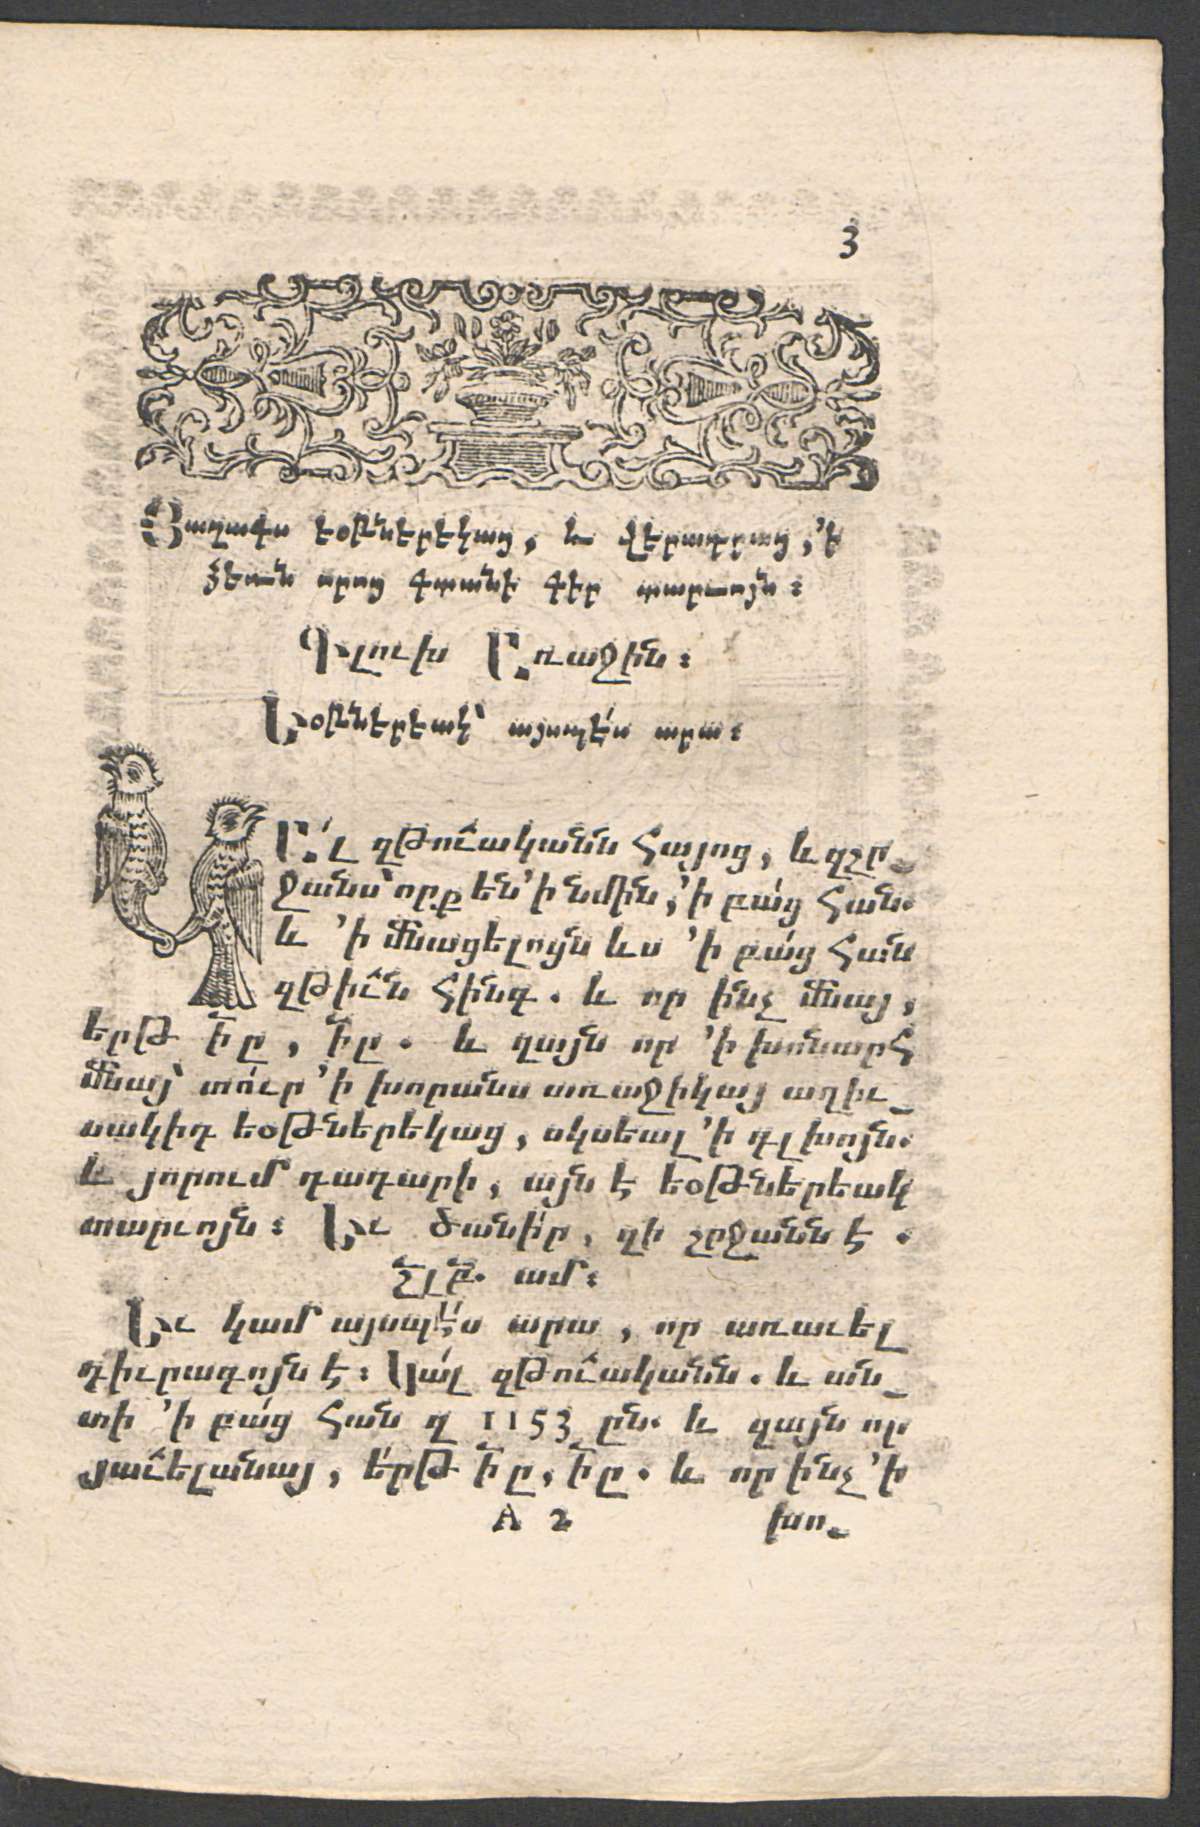 3
Յաղագս եօթներեկաց, և վերադրաց, ՚ի
ձեռն որոց գտանի գիր տարւոյն։
Գլուխ Առաջին։
Եօթներեակ՝ այսպէ՛ս արա։
Ա՛ռ զթուականն Հայոց, և զշր֊
ջանս՝ որք են ՚ի նմին, ՚ի բա՛ց հան.
և ՚ի մնացելոյն ևս ՚ի բա՛ց հան
զթիւն հինգ. և որ ինչ մնայ,
երթ ի՟ը, ի՟ը. և զայն որ ՚ի խոնարհ
մնայ՝ տո՛ւր ՚ի խորանս առաջիկայ աղիւ֊
սակիդ եօթներեկաց, սկսեալ ՚ի գլխոյն.
և յորում դադարի, այն է եօթներեակ
տարւոյն։ Եւ ծանի՛ր, զի շրջանն է.
շ՟լ՟բ. ամ։
Եւ կամ այսպէ՛ս արա, որ առաւել
դիւրագոյն է։ Կա՛լ զթուականն. և ան֊
տի ՚ի բա՛ց հան զ 1153 ըն. և զայն որ
յաւելանայ, ե՛րթ ի՟ը, ի՟ը. և որ ինչ ՚ի
A 2 խո֊